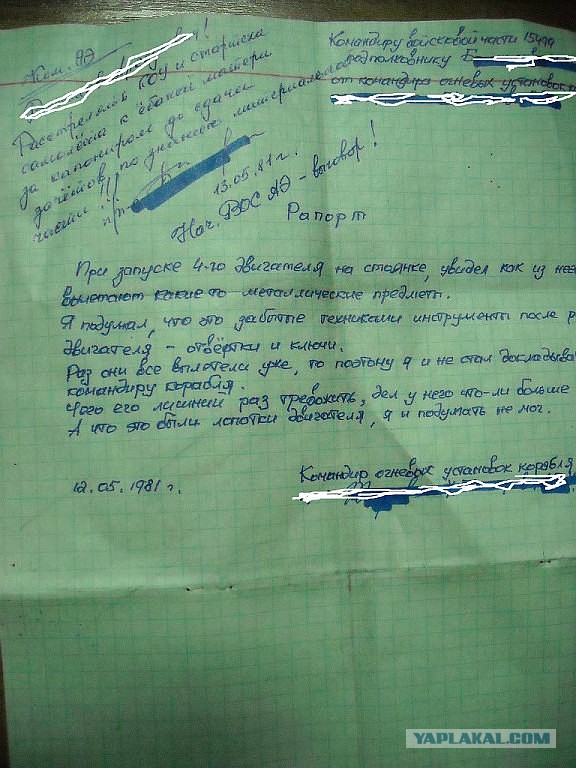 Командиру войсковой части 15499
подполковнику Б в
от командира огневых установок
Ком. АЭ
!
Расстрелять КОУ и старшего
самолёта к ебаной матери
за капониром до сдачи
зачётов по знанию материальной
части !!!
п/п-к Б в
13.05.81 г.
Нач. ВОС АЭ - выговор !
Рапорт
При запуске 4-го двигателя на стоянке, увидел как из него
вылетают какие то металлические предметы.
Я подумал, что это забытые техниками инструменты после р
двигателя - отвёртки и ключи.
Раз они все вылетели уже, то поэтому я и не стал докладыва
командиру корабля.
Чего его лишний раз тревожить, дел у него что-ли больше
А что это были лопатки двигателя, я и подумать не мог.
12.05.1981 г.
Командир огневых установок корабля
YAPLAKAL.COM